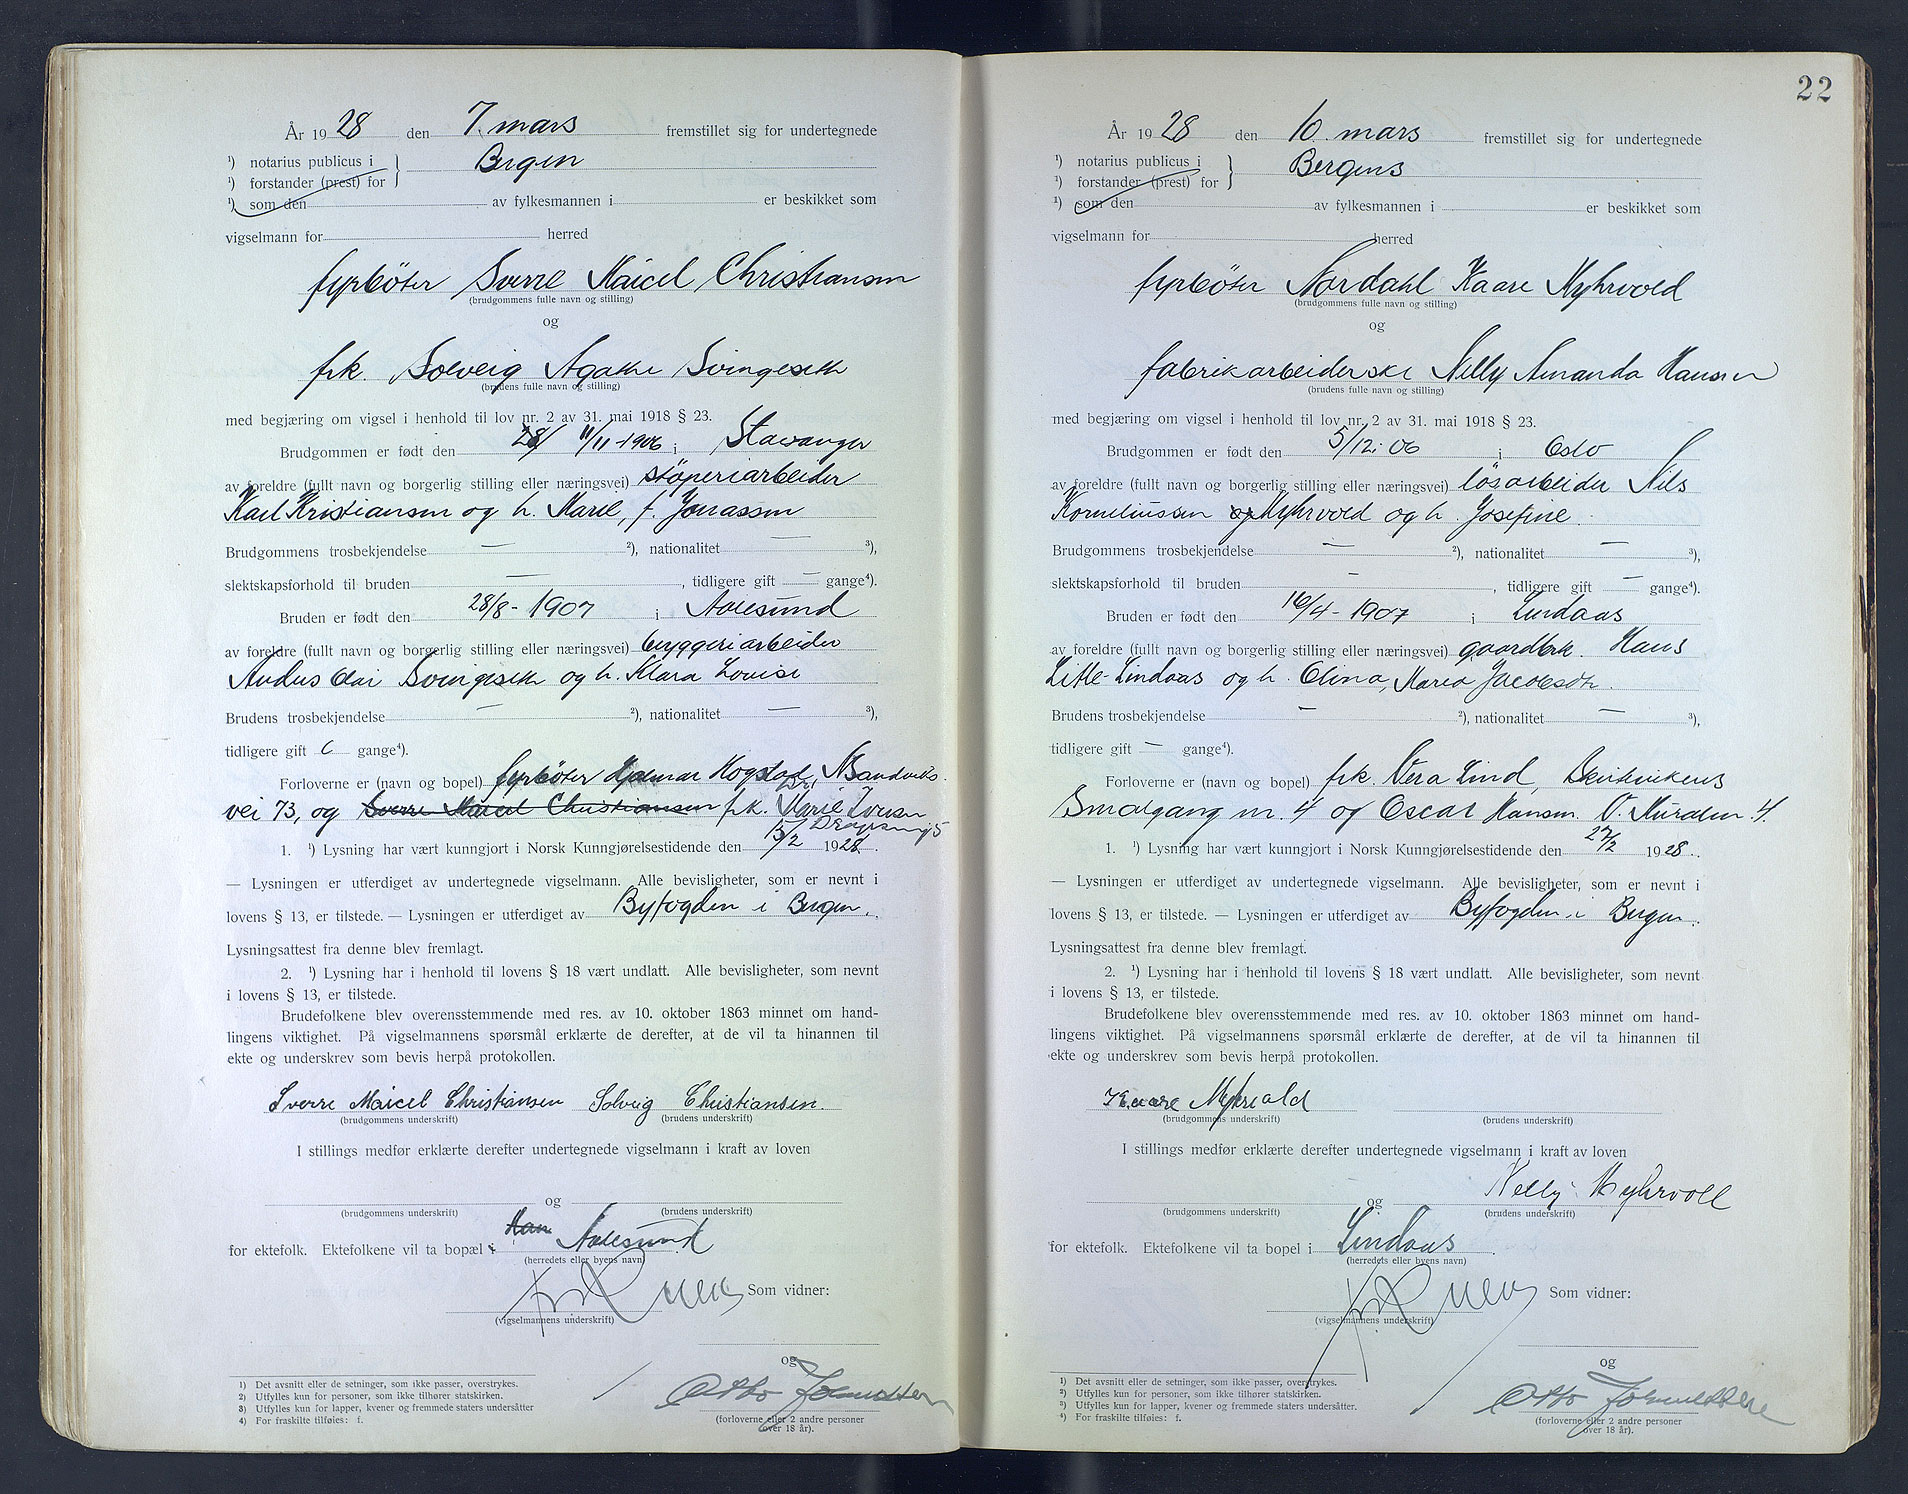 År 1928 den 7. mars fremstillet sig for undertegnede
¹) notarius publicus i
Bergen
¹) forstander (prest) for
¹) som den av fylkesmannen i er beskikket som
vigselmann for herred
fyrböter Sverre Maicel Christiansen
(brudgommens fulle navn og stilling)
og
frk. Solveig Agathe Svingeseth
(brudens fulle navn og stilling)
med begjæring om vigsel i henhold til lov nr. 2 av 31. mai 1918 § 23.
Brudgommen er født den 28/ 11/11-1906 i Stavanger
av foreldre (fullt navn og borgerlig stilling eller næringsvei) støperiarbeider
Karl Kristiansen og h. Marie, f. Jonassen
Brudgommens trosbekjendelse — ²), nationalitet — ³),
slektskapsforhold til bruden — , tidligere gift — gange⁴).
Bruden er født den 28/8-1907 i Aalesund
av foreldre (fullt navn og borgerlig stilling eller næringsvei) bryggeriarbeider
Svingeseth og h. Klara Lovise
Brudens trosbekjendelse — ²), nationalitet — ³),
tidligere gift gange⁴).
Forloverne er (navn og bopel) fyrböter Hjalmar Hogstad, N Sandviks
vei 73, og Sverre Maicel Christiansen frk. Marie Iversen
15/2
1. ¹) Lysning har vært kunngjort i Norsk Kunngjørelsestidende den 1928.
— Lysningen er utferdiget av undertegnede vigselmann. Alle bevisligheter, som er nevnt i
lovens § 13, er tilstede. — Lysningen er utferdiget av Byfogden i Bergen.
Lysningsattest fra denne blev fremlagt.
2. ¹) Lysning har i henhold til lovens § 18 vært undlatt. Alle bevisligheter, som nevnt
i lovens § 13, er tilstede.
Brudefolkene blev overensstemmende med res. av 10. oktober 1863 minnet om hand-
lingens viktighet. På vigselmannens spørsmål erklærte de derefter, at de vil ta hinannen til
ekte og underskrev som bevis herpå protokollen.
Sverre Maicel Christiansen Solveig Christiansen.
(brudgommens underskrift) (brudens underskrift)
I stillings medfør erklærte derefter undertegnede vigselmann i kraft av loven
og
(brudgommens underskrift) (brudens underskrift)
for ektefolk. Ektefolkene vil ta bopæl i Aalesund
(herredets eller byens navn)
Som vidner:
(vigselmannens underskrift)
og
Otto
(forloverne eller 2 andre personer
over 18 år).
¹) Det avsnitt eller de setninger, som ikke passer, overstrykes.
²) Utfylles kun for personer, som ikke tilhører statskirken.
³) Utfylles kun for lapper, kvener og fremmede staters undersåtter
⁴) For fraskilte tilføies: f.
22
År 1928 den 10. mars fremstillet sig for undertegnede
¹) notarius publicus i
Bergens
¹) forstander (prest) for
¹) som den av fylkesmannen i er beskikket som
vigselmann for herred
fyrböter Nordahl Kaare Myhrvold
(brudgommens fulle navn og stilling)
og
fabrikarbeiderske Nelly Amanda Hansen
(brudens fulle navn og stilling)
med begjæring om vigsel i henhold til lov nr. 2 av 31. mai 1918 § 23.
Brudgommen er født den 5/12-06 i Oslo
av foreldre (fullt navn og borgerlig stilling eller næringsvei) løsarbeider Nils
Korneliussen og Myhrvold og h. Josefine.
Brudgommens trosbekjendelse — ²), nationalitet — ³),
slektskapsforhold til bruden — , tidligere gift — gange⁴).
Bruden er født den 16/4-1907 i Lindaas
av foreldre (fullt navn og borgerlig stilling eller næringsvei) gaardbrk. Hans
Litle-Lindaas og h. Olina, Maria Jacobsdtr.
Brudens trosbekjendelse — ²), nationalitet — ³),
tidligere gift — gange⁴).
Forloverne er (navn og bopel) frk. Vera Lind,
Smalgang nr. 4 og Oscar Hansen 4.
27/2
1. ¹) Lysning har vært kunngjort i Norsk Kunngjørelsestidende den 1928.
— Lysningen er utferdiget av undertegnede vigselmann. Alle bevisligheter, som er nevnt i
lovens § 13, er tilstede. — Lysningen er utferdiget av Byfogden i Bergen.
Lysningsattest fra denne blev fremlagt.
2. ¹) Lysning har i henhold til lovens § 18 vært undlatt. Alle bevisligheter, som nevnt
i lovens § 13, er tilstede.
Brudefolkene blev overensstemmende med res. av 10. oktober 1863 minnet om hand-
lingens viktighet. På vigselmannens spørsmål erklærte de derefter, at de vil ta hinannen til
ekte og underskrev som bevis herpå protokollen.
Kaare Myhrvold
(brudgommens underskrift) (brudens underskrift)
I stillings medfør erklærte derefter undertegnede vigselmann i kraft av loven
og Nelly Myhrvoll
(brudgommens underskrift) (brudens underskrift)
for ektefolk. Ektefolkene vil ta bopel i Lindaas.
(herredets eller byens navn)
Som vidner:
(vigselmannens underskrift)
og
Otto
(forloverne eller 2 andre personer
over 18 år).
¹) Det avsnitt eller de setninger, som ikke passer, overstrykes.
²) Utfylles kun for personer, som ikke tilhører statskirken.
³) Utfylles kun for lapper, kvener og fremmede staters undersåtter.
⁴) For fraskilte tilføies: f.